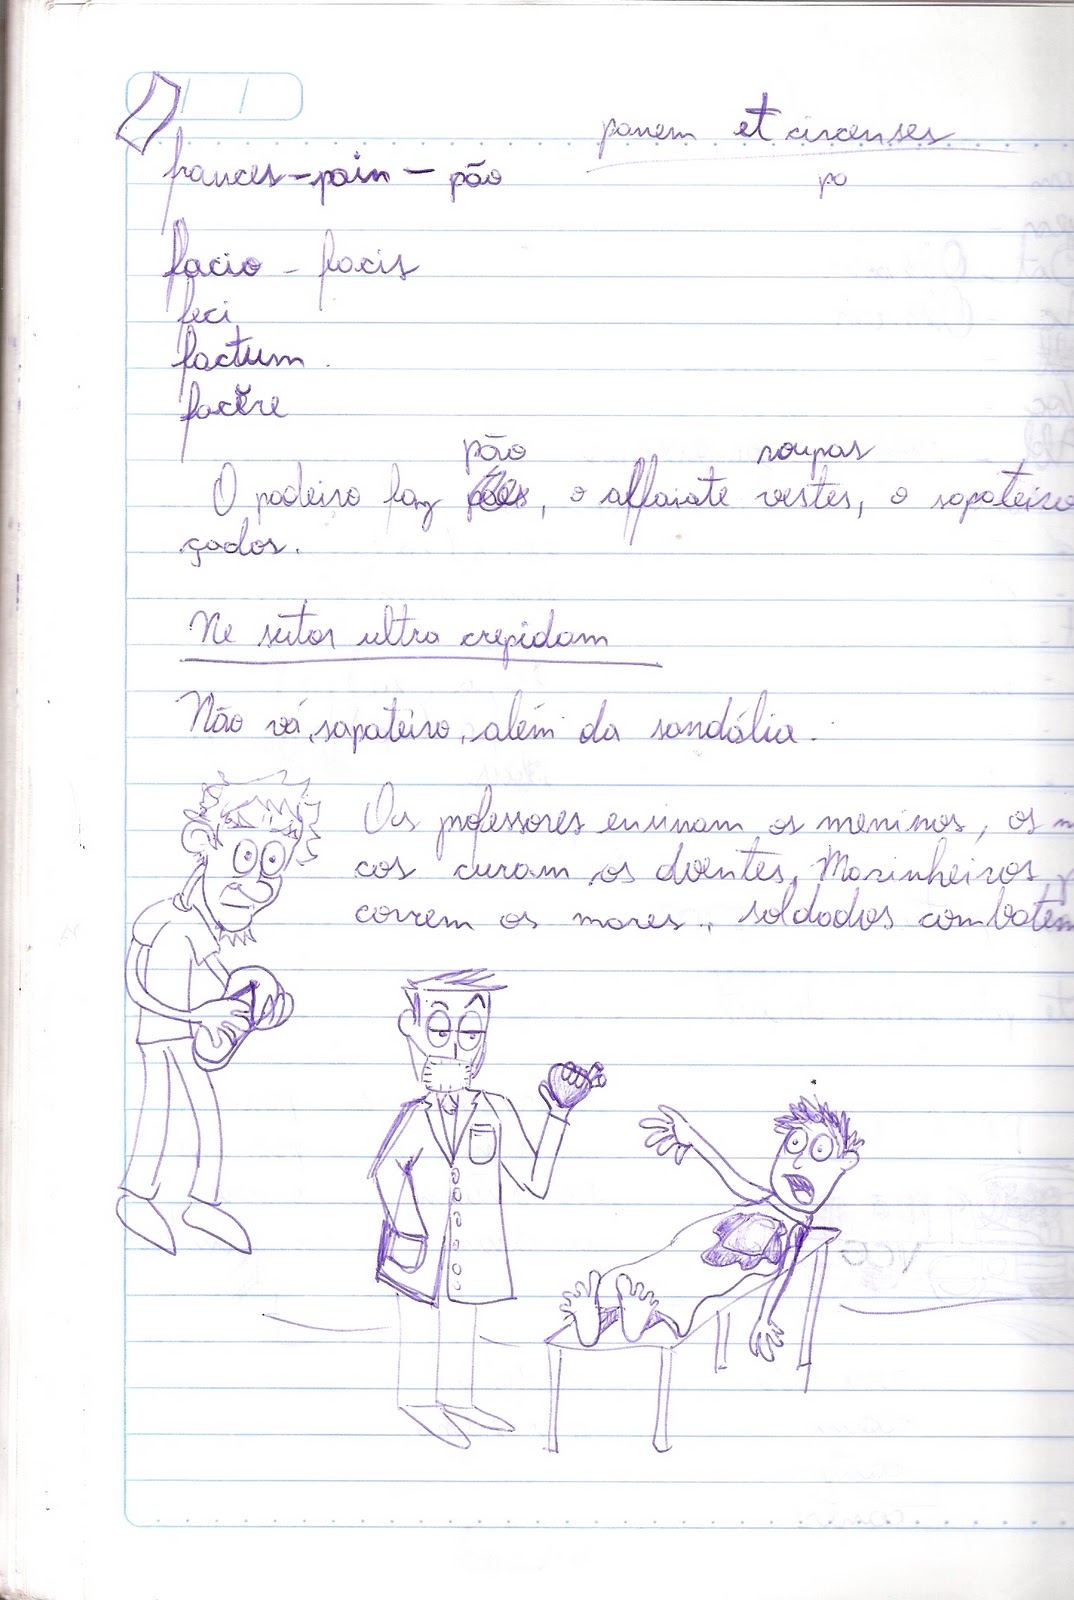 panem et circenses
frances - pain - pão
po
facio - facis
feci
factum
facĕre
pão roupas
O padeiro faz pães, o alfaiate vestes, o sapateiro
çados.
Ne sutor ultra crepidam
Não vá, sapateiro, além da sandália.
Os professores ensinam os meninos, os m
cos curam os doentes, Marinheiros
correm os mares, soldados combatem